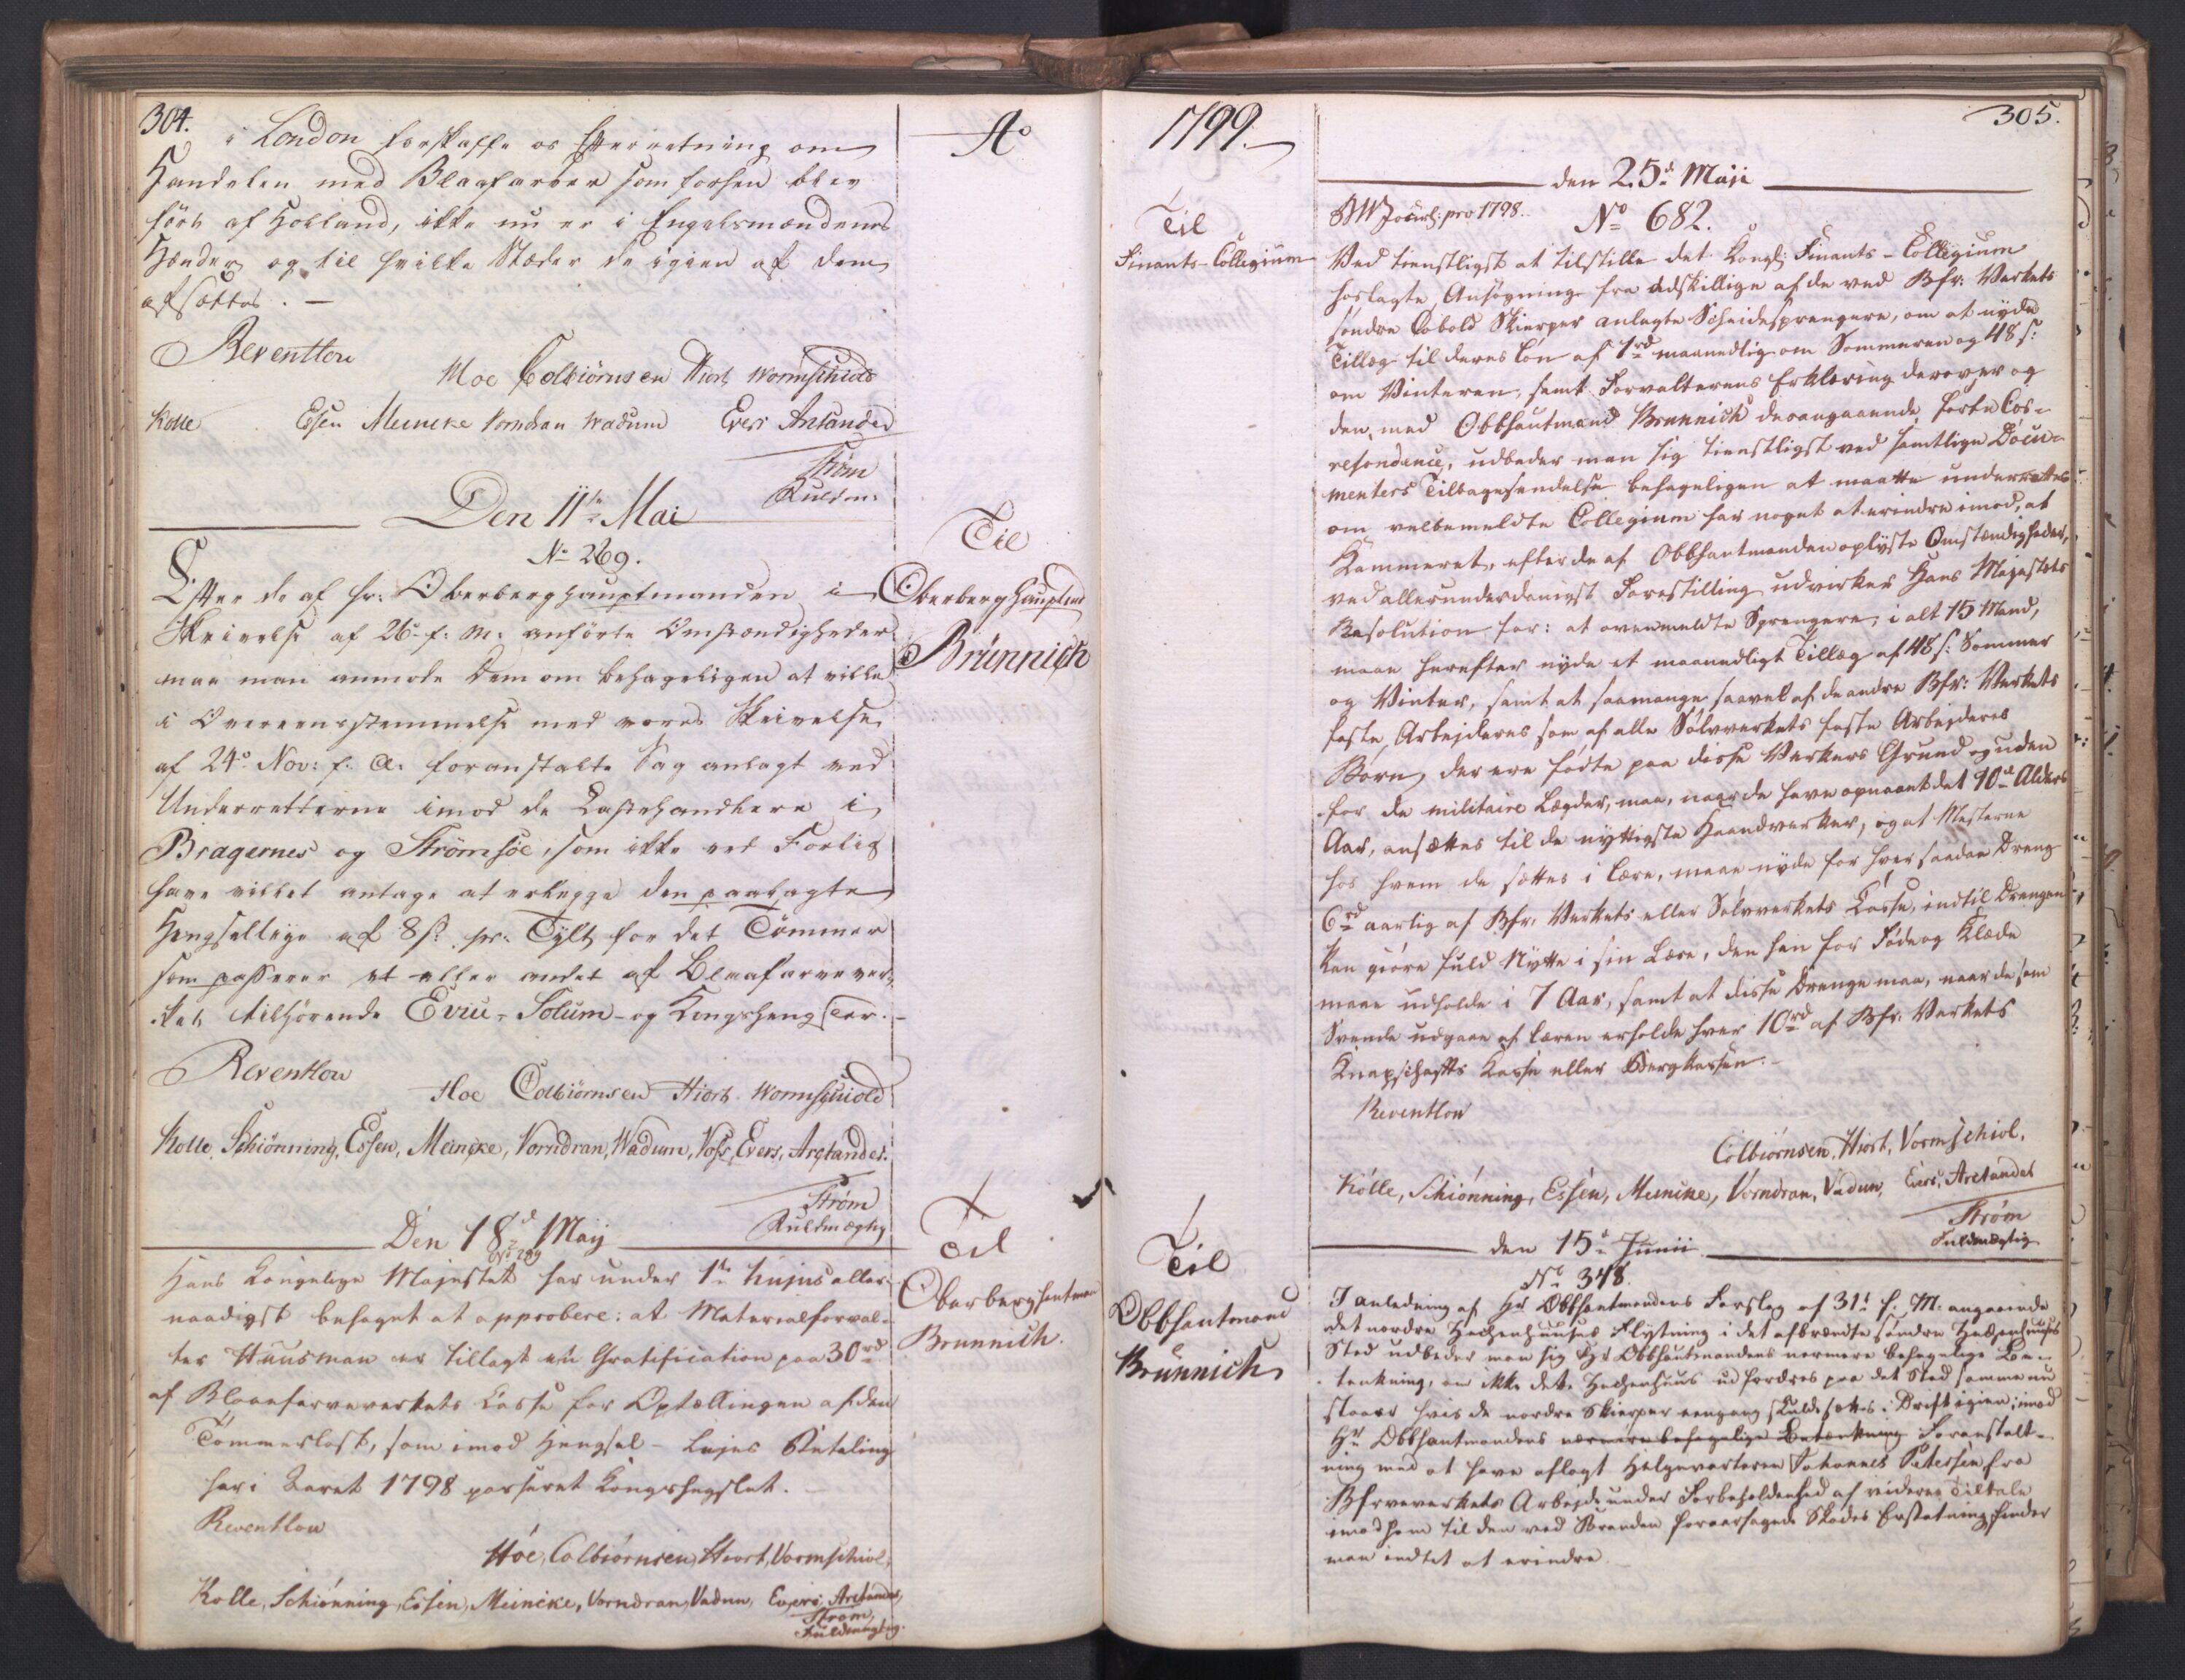 304.
i London forskaffe os Efterretning om
Handelen med Blaafarver som forhen blev
ført af Holland, ikke nu er i Engelsmændenes
Hænder og til hvilke Stæder de igien af dem
afsættes. —
Reventlow
Moe Colbiørnsen Hiort Wormschiold
Kolle Essen Meincke Vorndran Wadum Evers Arctander
Strøm
Fuldm:
Den 11te Mai
No 269.
Efter de af Hr: Oberberghauptmanden i
Skrivelse af 26 f: M: anførte Omstændigheder
maa man anmode Dem om behageligen at ville
i Overeensstemmelse med vores Skrivelse
af 24de Nov: f: A: foranstalte Sag anlagt ved
Underretterne imod de Lasthandlere i
Bragernes og Strømsøe, som ikke ved Forlig
have villet antage at erlegge den paalagte
Hengselleye af 8 s: pr: Tylt for det Tømmer
som passerer et eller andet af Blaafarvever-
ket tilhørende Eviu- Solum- og Kongshengsler. -
Reventlow
Hoe Colbiørnsen Hiort Wormschiold
Kolle, Schiønning, Essen, Meincke, Vorndran, Wadum, Voss, Evers, Arctander.
Strøm
Fuldmægtig
Den 18d May
No 289
Hans Kongelige Majestet har under 1te hujus aller-
naadigst behaget at approbere: at Materialforval-
ter Huusman er tillagt en Gratification paa 30rd
af Blaafarveverkets Casse for Optællingen af den
Tømmerlast, som imod Hengsel-Lejes Betaling
har i Aaret 1798 passeret Kongshegslet.
Reventlow
Hoe, Colbiørnsen, Hiort, Vormschiol,
Kolle, Schiønning, Essen, Meincke, Vorndran, Vadum, Evers, Arctander,
Strøm,
Fuldmægtig.
Ao
Til
Oberberghauptmd
Brünnich
Til
Oberberghautman
Brunnich.
1799.
Til
Finants-Collegium
Til
Obbhautmand
Brünnich
305.
den 25d Maji
BW Jourl: pro 1798.
No 682.
Ved tienstligst at tilstille det Kongl: Finants-Collegium
hoslagte Ansøgning fra adskillige af de ved Bfr: Verkets
søndre Cobold Skierper anlagte Scheidesprengere, om at nyde
Tillæg til deres Løn af 1rd maanedlig om Sommeren og 48 s:
om Vinteren, samt Forvalterens Erklæring derover og
den, med Obbhautmand Brunnich desangaaende førte Cor-
respondence, udbeder man sig tienstligst ved samtlige Docu-
menters Tilbagesendelse behageligen at maatte underrettes
om velbemeldte Collegium har noget at erindre imod, at
Kammeret, efter de af Obbhautmanden oplyste Omstændigheder,
ved allerunderdanigst Forestilling udvirker Hans Majestets
Resolution for: at ovenmeldte Sprengere, i alt 15 Mand,
maae herefter nyde et maanedligt Tillæg af 48 s: Sommer
og Vinter, samt at saamange saavel af de andre Bfr: Verkets
faste Arbejderes som af alle Sølvverkets faste Arbejderes
Børn, der ere fødte paa disse Verkers Grund og uden
for de militaire Lægder, maa, naar de have opnaaet det 10de Alders
Aar, ansættes til de nyttigste Haandverker, og at Mesterne
hos hvem de sættes i Lære, maae nyde for hver saadan Dreng
6rd aarlig af Bfr: Verkets eller Sølvverkets Casse, indtil Drengen
kan giøre fuld Nytte i sin Lære, den han for Føde og Klæde
maae udholde i 7 Aar, samt at disse Drenge maa, naar de som
Svende udgaae af Læren erholde hver 10rd af Bfr: Verkets
Knapschafts Casse eller Bergkassen. -
Reventlow
Colbiørnsen, Hiort, Vormschiol.
Kølle, Schiønning, Essen, Meincke, Vorndran, Vadum, Evers, Arctander
Strøm
Fuldmægtig
den 15d Junii
No 348.
I anledning af Hr Obbhautmandens Forslag af 31d f. M. angaaende
det nordre Hechenhuuses Flytning i det afbrændte søndre Hechenhuuses
Sted udbeder man sig Hr Obbhautmandens nærmere behagelige Be-
tenkning, om ikke det Hechenhuus udfordres paa det Sted samme nu
staaer hvis de nordre Skierper eengang skulde sættes i Drift igien; imod
Hr Obbhautmandens nærmere behagelige Betænkning Foranstalt-
ning med at have aflagt Johannes Petersen fra
Bfrververkets Arbejde under Forbeholdenhed af videre Tiltale
imod ham til den ved Branden foraarsagede Skades Erstatning, finder
man indtet at erindre.